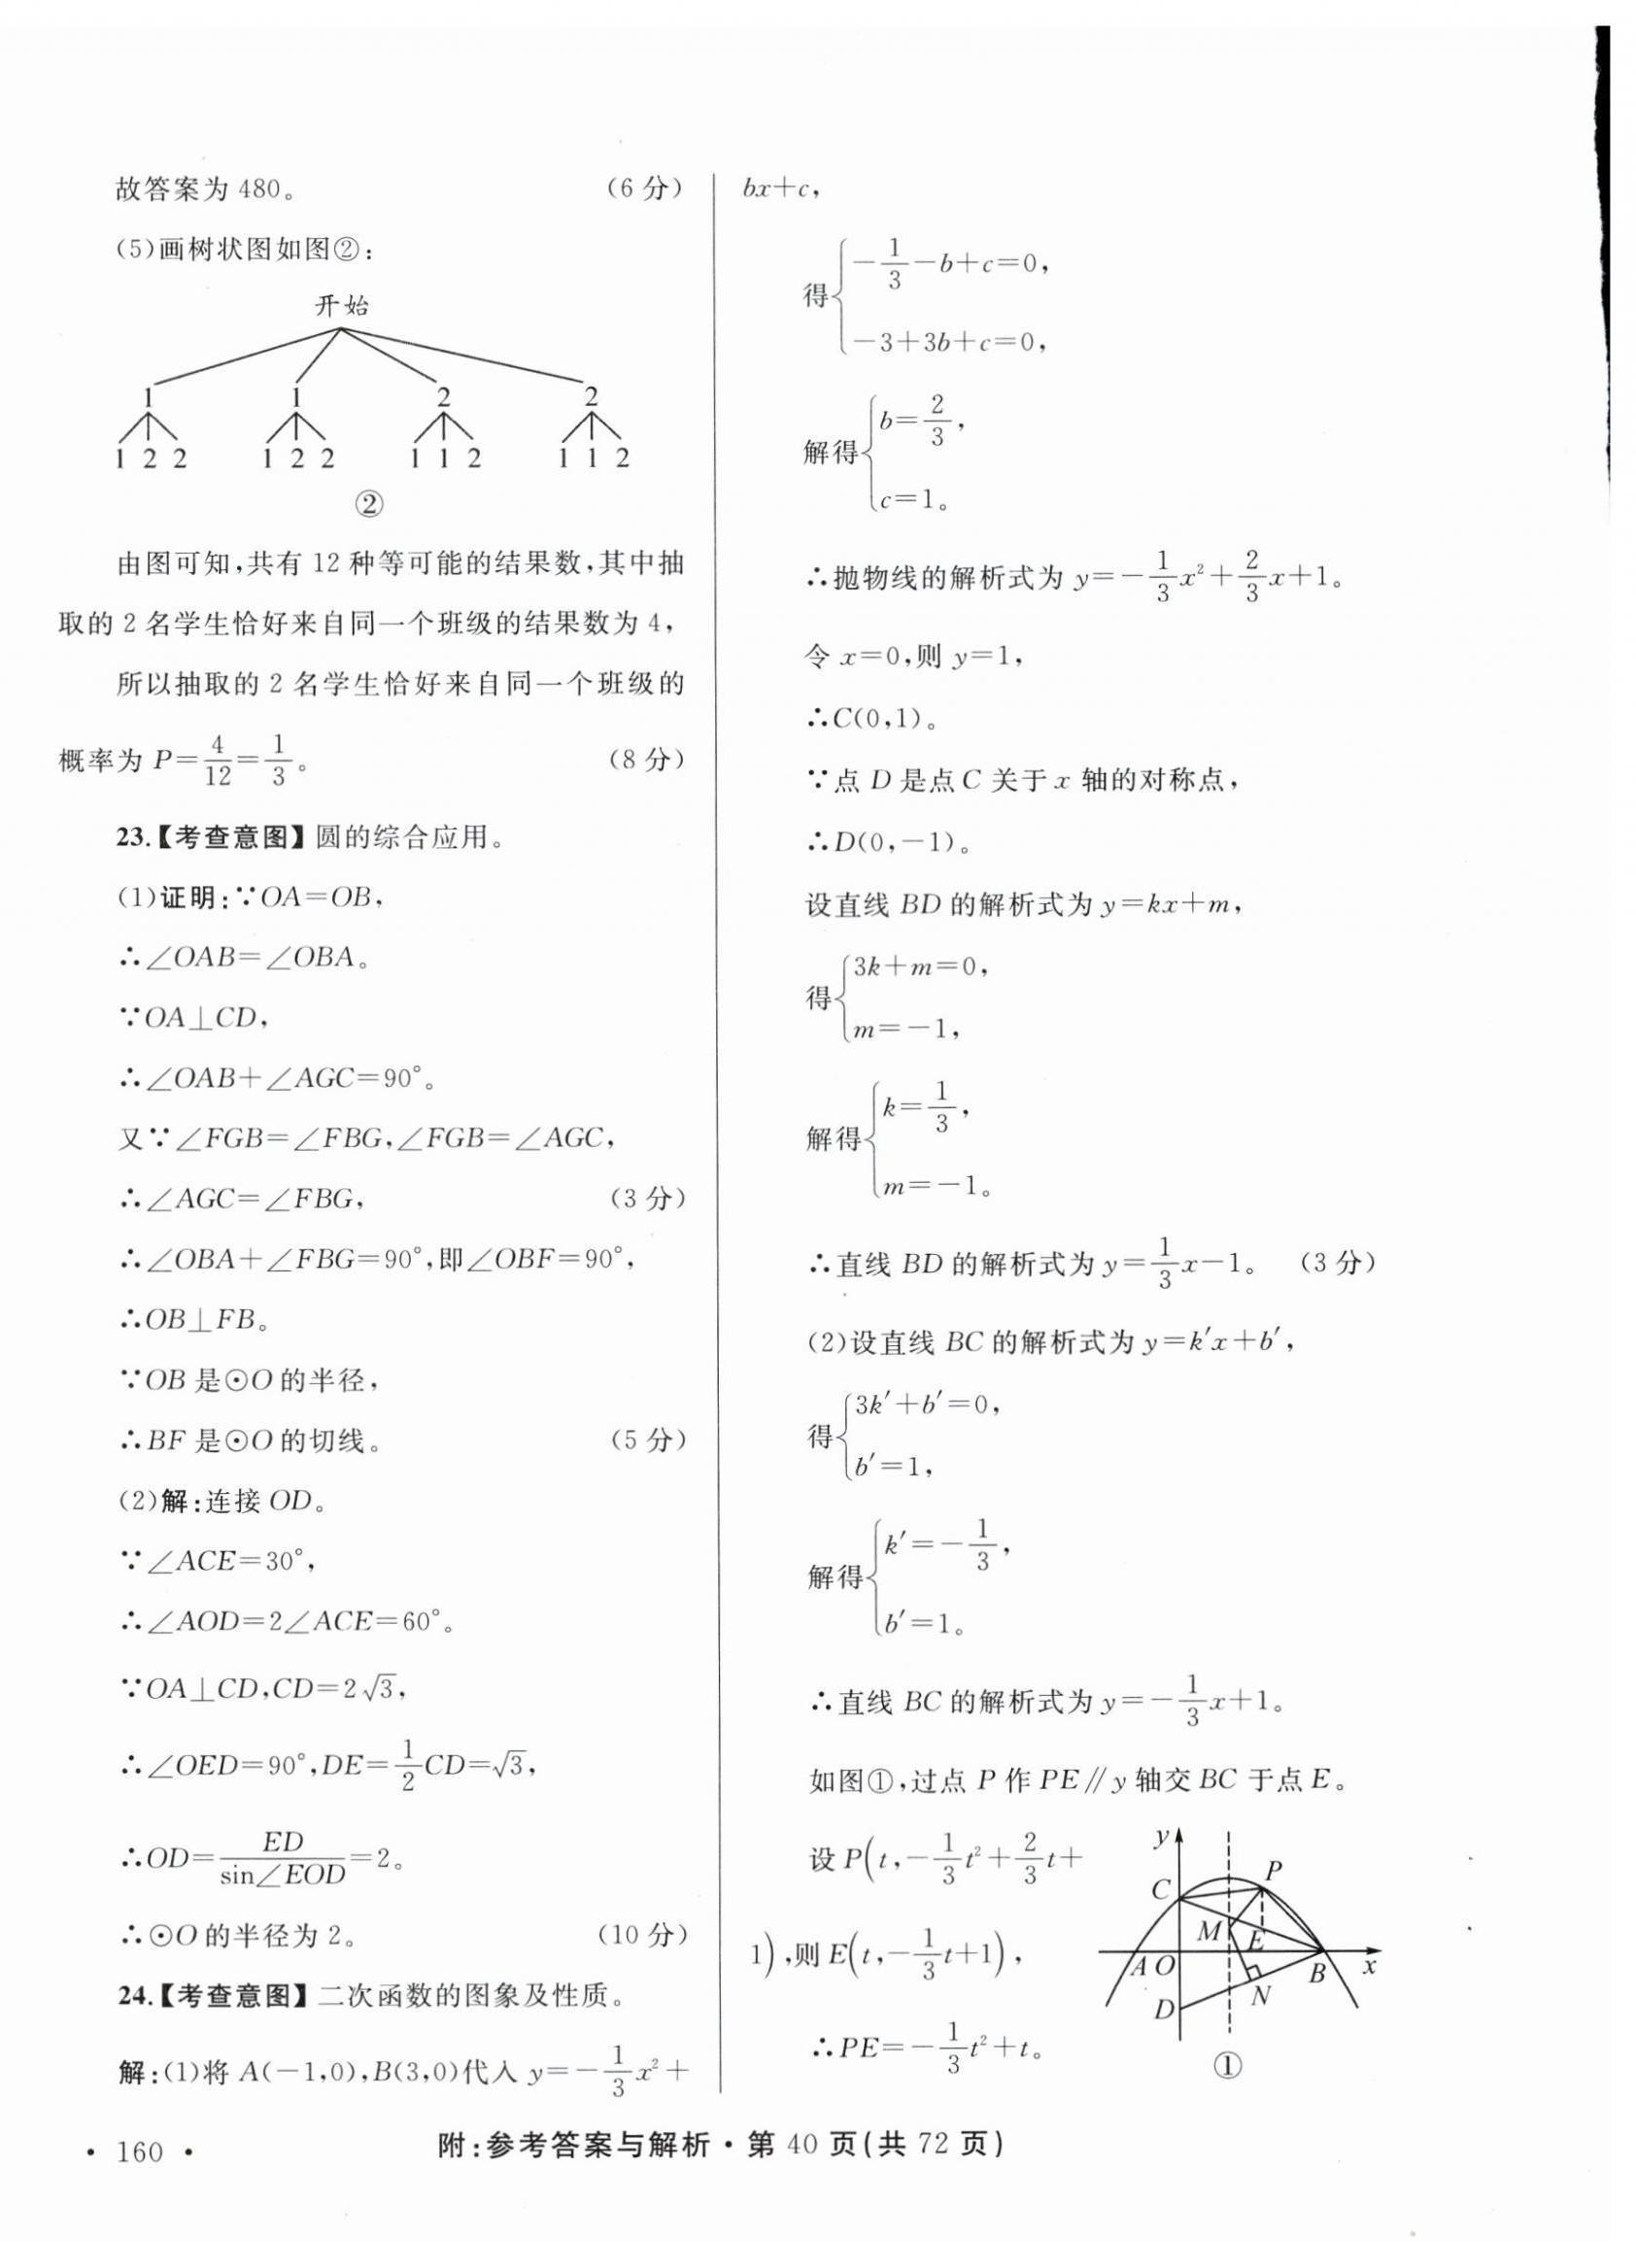 故答案为 480。 (6 分)
(5)画树状图如图②:
开始
1 1 2 2
1 2 2 1 2 2 1 1 2 1 1 2
②
由图可知,共有 12 种等可能的结果数,其中抽
取的 2 名学生恰好来自同一个班级的结果数为 4,
所以抽取的 2 名学生恰好来自同一个班级的
概率为 P=4/12=1/3。 (8 分)
23.【考查意图】圆的综合应用。
(1)证明:∵OA=OB,
∴∠OAB=∠OBA。
∵OA⊥CD,
∴∠OAB+∠AGC=90°。
又∵∠FGB=∠FBG,∠FGB=∠AGC,
∴∠AGC=∠FBG, (3 分)
∴∠OBA+∠FBG=90°,即∠OBF=90°,
∴OB⊥FB。
∵OB 是⊙O 的半径,
∴BF 是⊙O 的切线。 (5 分)
(2)解:连接 OD。
∵∠ACE=30°,
∴∠AOD=2∠ACE=60°。
∵OA⊥CD,CD=2√3,
∴∠OED=90°,DE=1/2CD=√3,
∴OD=ED/sin∠EOD=2。
∴⊙O 的半径为 2。 (10 分)
24.【考查意图】二次函数的图象及性质。
解:(1)将 A(-1,0),B(3,0)代入 y=-1/3x²+
bx+c,
得{-1/3-b+c=0,
-3+3b+c=0,
解得{b=2/3,
c=1。
∴抛物线的解析式为 y=-1/3x²+2/3x+1。
令 x=0,则 y=1,
∴C(0,1)。
∵点 D 是点 C 关于 x 轴的对称点,
∴D(0,-1)。
设直线 BD 的解析式为 y=kx+m,
得{3k+m=0,
m=-1,
解得{k=1/3,
m=-1。
∴直线 BD 的解析式为 y=1/3x-1。 (3 分)
(2)设直线 BC 的解析式为 y=k′x+b′,
得{3k′+b′=0,
b′=1,
解得{k′=-1/3,
b′=1。
∴直线 BC 的解析式为 y=-1/3x+1。
如图①,过点 P 作 PE∥y 轴交 BC 于点 E。
设 P(t,-1/3t²+2/3t+
1),则 E(t,-1/3t+1),
∴PE=-1/3t²+t。
y
C P
M E
A O B x
D N
①
• 160 • 附:参考答案与解析·第 40 页(共 72 页)